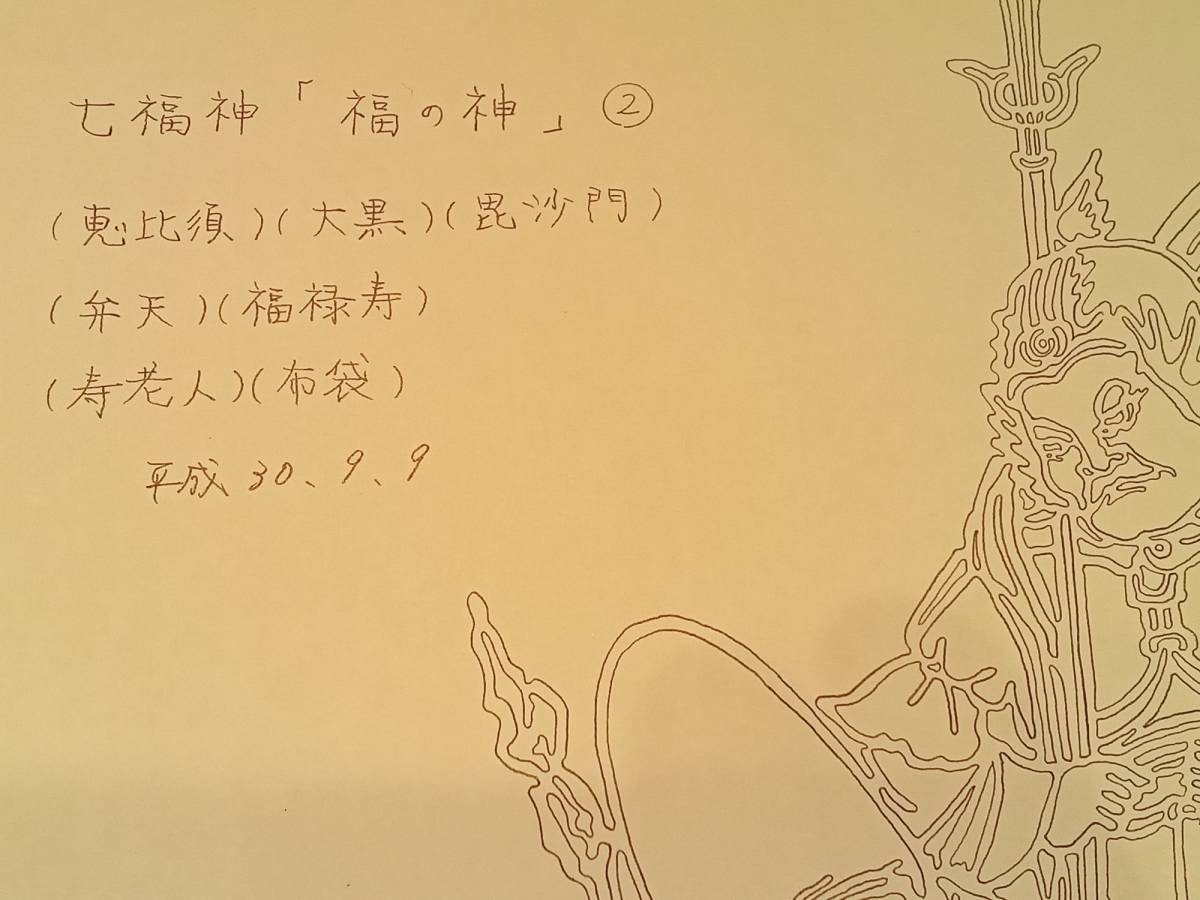 七福神「福の神」②
(恵比須)(大黒)(毘沙門)
(弁天)(福禄寿)
(寿老人)(布袋)
平成30、9、9